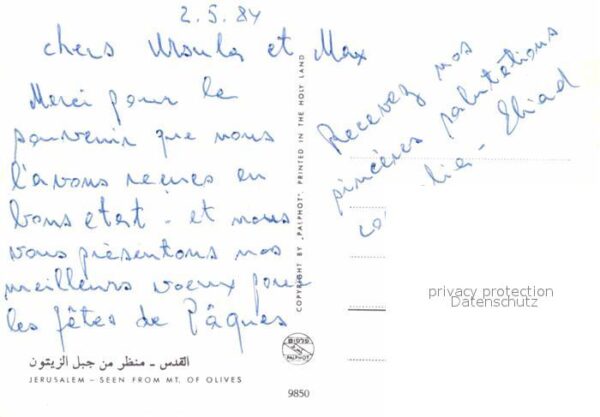 2.5.84
chers Ursula et Max
Merci pour le
souvenir que nous
l'avons reçues en
bons etat - et nous
vous présentons nos
meilleurs voeux pour
les fêtes de Pâques
Recevez nos
sincères salutations
Eliad
COPYRIGHT BY „PALPHOT", PRINTED IN THE HOLY LAND
privacy protection
Datenschutz
القدس - منظر من جبل الزيتون
JERUSALEM – SEEN FROM MT. OF OLIVES
PALPHOT
9850